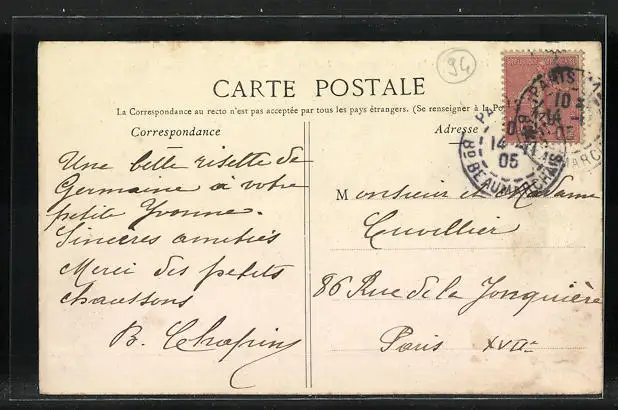 94
CARTE POSTALE
La Correspondance au recto n'est pas acceptée par tous les pays étrangers. (Se renseigner à la Po
Correspondance
Adresse
REPUBLIQUE FRANCAISE
PARIS
10
14
05
14
05
Bd BEAUMARCHAIS
Une belle risette de
Germaine à votre
petite Yvonne.
Sincères amitiés
Merci des petits
chaussons
Monsieur et Madame
Cuvillier
86 Rue de la Jonquière
Paris XVIIe